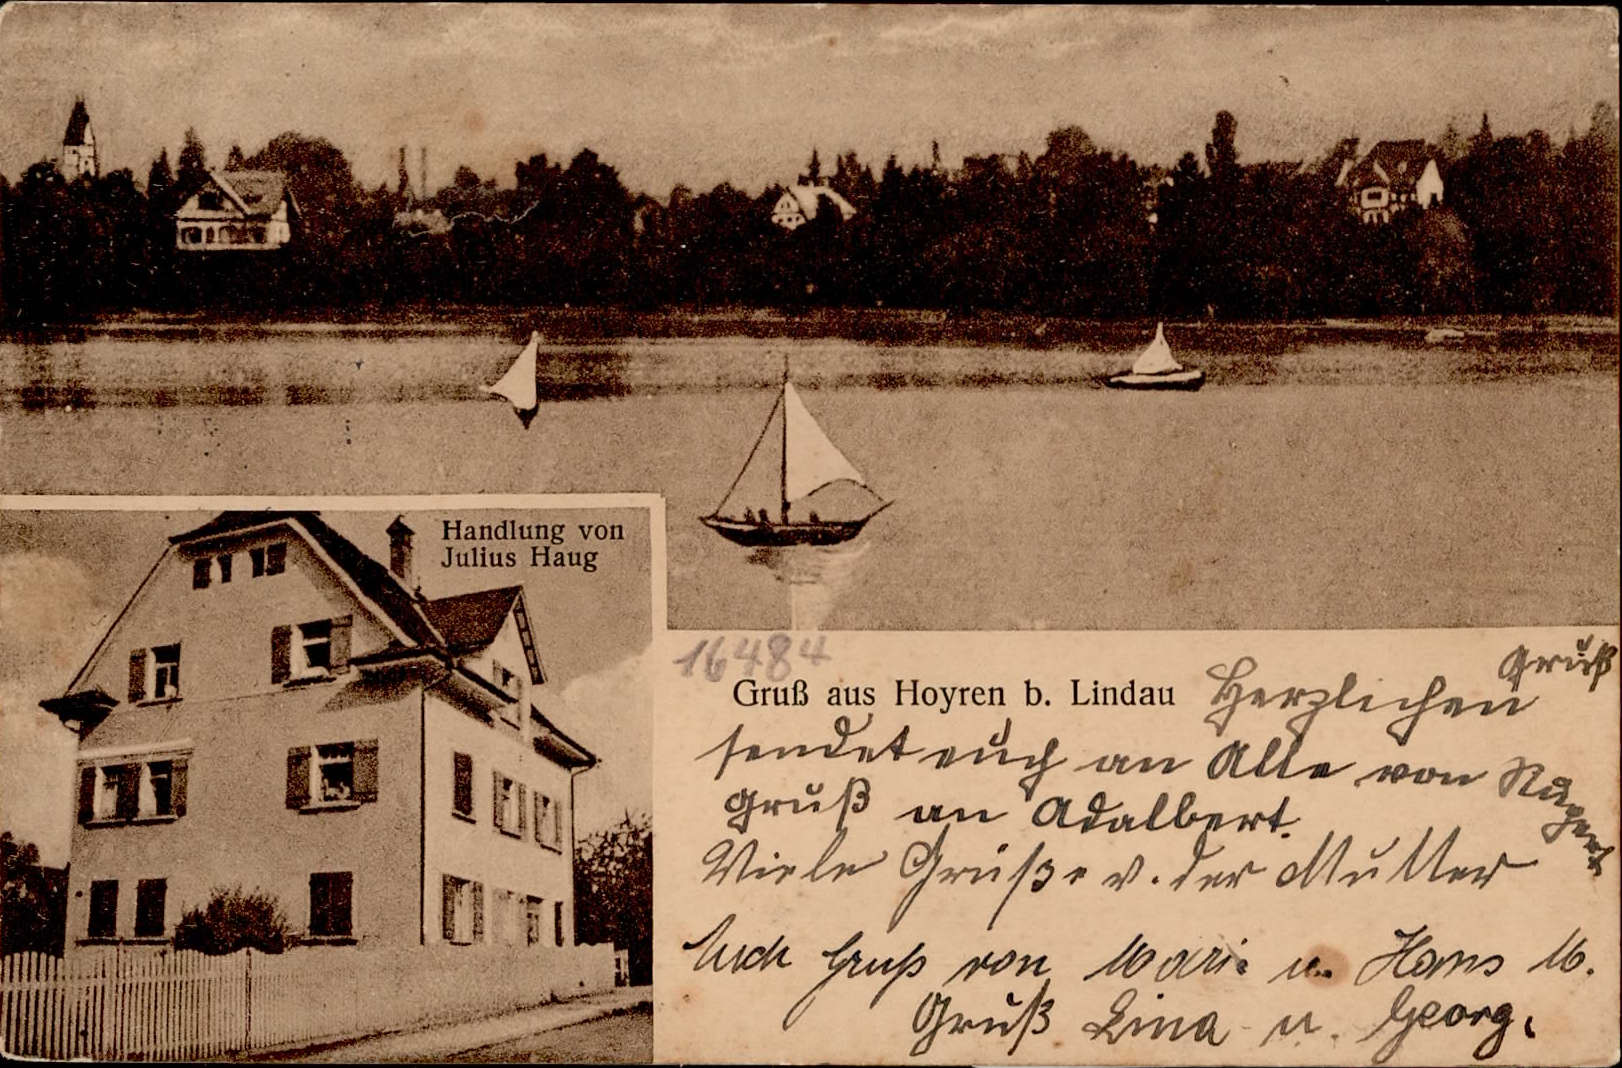 Handlung von
Julius Haug
16484
Gruß aus Hoyren b. Lindau
Herzlichen Gruß
sendet euch an Alle von
gruß an Adalbert.
Viele Grüße v. der Mutter
Auch Gruß von Marie u. Hans M.
Gruß Lina u. Georg.